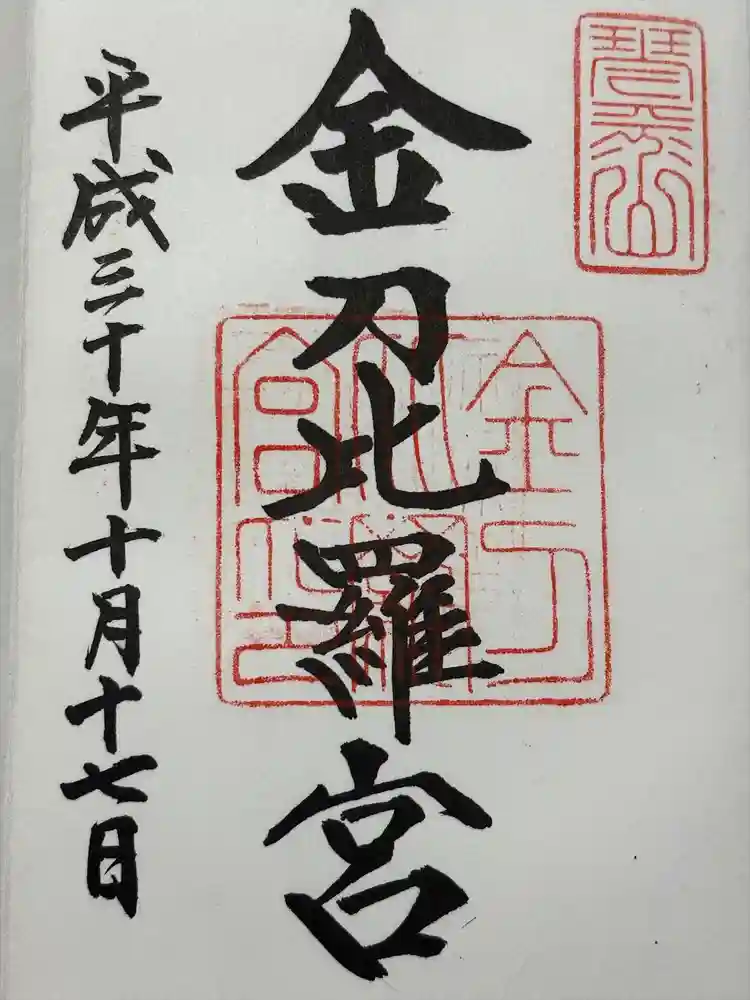 琴平山
金刀比羅宮
金刀
比羅
宮印
平成三十年十月十七日